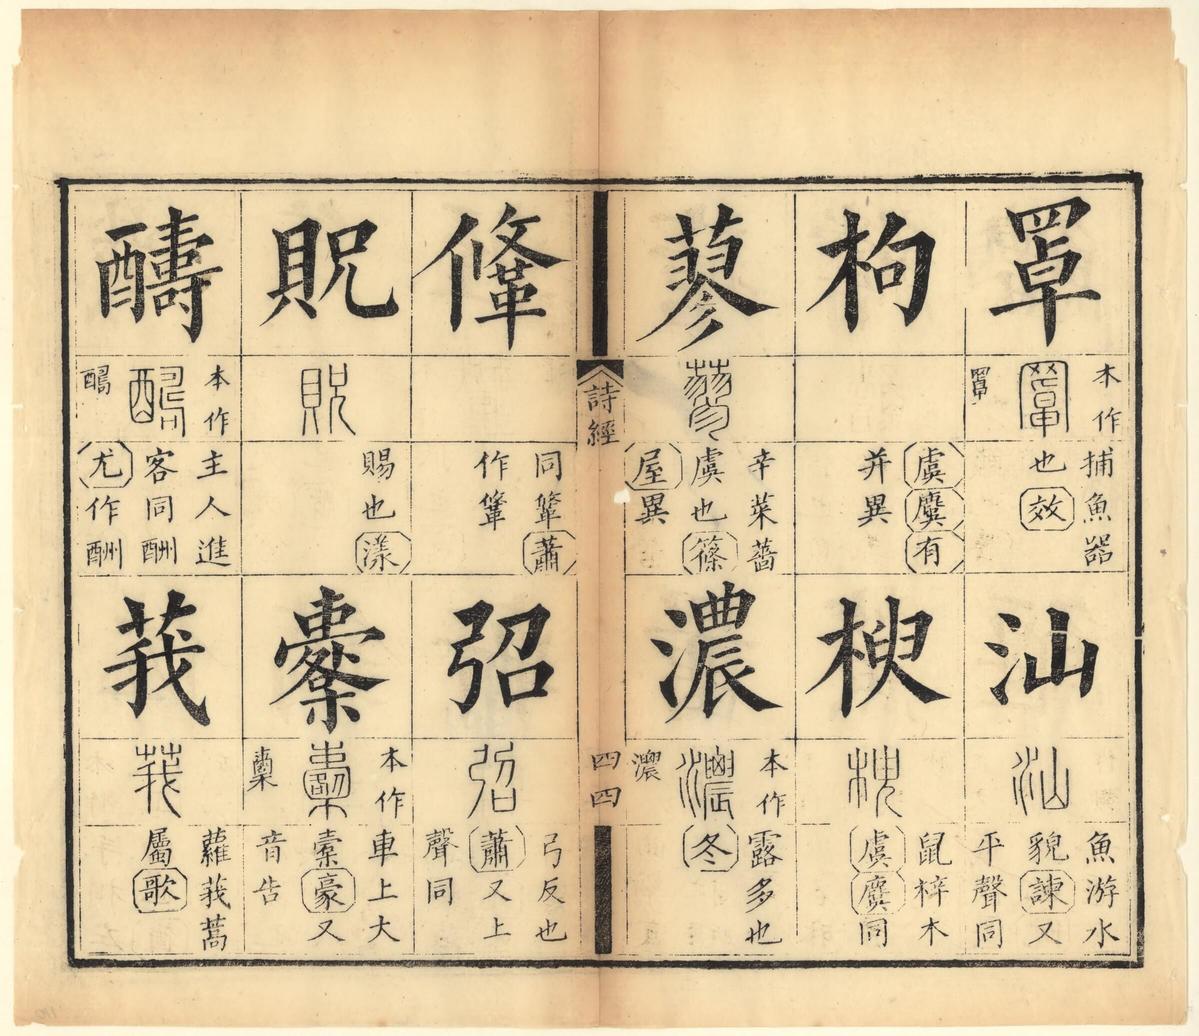 罩
本作
罩
捕魚器
也效
汕
汕
魚游水
貌諫又
平聲同
枸
虞麌有
并異
楰
楰
鼠梓木
虞麌同
蓼
蓼
辛菜薔
虞也篠
屋異
濃
本作
濃
濃
露多也
冬
詩經
四四
鞗
同鞗蕭
作肇
弨
弨
弓反也
蕭又上
聲同
貺
貺
賜也漾
櫜
本作
櫜
車上大
櫜豪又
音告
醻
本作
主人進
客同酬
尤作酬
莪
莪
蘿莪蒿
屬歌